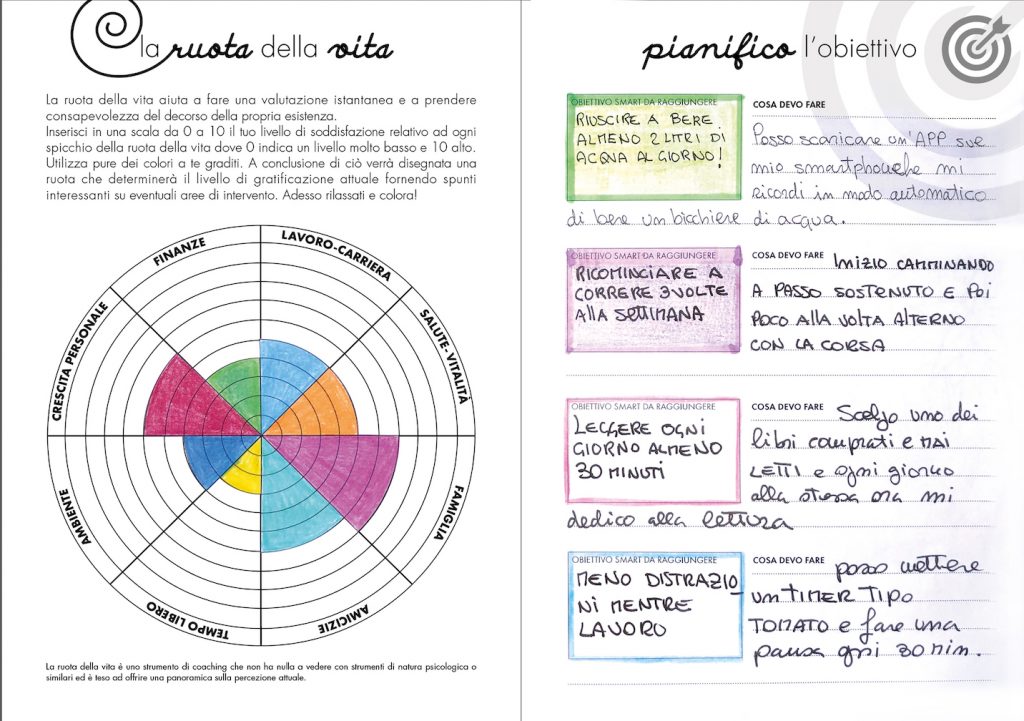 la ruota della vita
La ruota della vita aiuta a fare una valutazione istantanea e a prendere
consapevolezza del decorso della propria esistenza.
Inserisci in una scala da 0 a 10 il tuo livello di soddisfazione relativo ad ogni
spicchio della ruota della vita dove 0 indica un livello molto basso e 10 alto.
Utilizza pure dei colori a te graditi. A conclusione di ciò verrà disegnata una
ruota che determinerà il livello di gratificazione attuale fornendo spunti
interessanti su eventuali aree di intervento. Adesso rilassati e colora!
FINANZE
LAVORO-CARRIERA
CRESCITA PERSONALE
SALUTE-VITALITÀ
AMBIENTE
FAMIGLIA
TEMPO LIBERO
AMICIZIE
La ruota della vita è uno strumento di coaching che non ha nulla a vedere con strumenti di natura psicologica o
similari ed è teso ad offrire una panoramica sulla percezione attuale.
pianifico l'obiettivo
OBIETTIVO SMART DA RAGGIUNGERE
RIUSCIRE A BERE
ALMENO 2 LITRI DI
ACQUA AL GIORNO!
COSA DEVO FARE
Posso scaricare un'APP sul
mio smartphone che mi
ricordi in modo automatico
di bere un bicchiere di acqua.
OBIETTIVO SMART DA RAGGIUNGERE
RICOMINCIARE A
CORRERE 3 VOLTE
ALLA SETTIMANA
COSA DEVO FARE INIZIO CAMMINANDO
A PASSO SOSTENUTO E POI
POCO ALLA VOLTA ALTERNO
CON LA CORSA
OBIETTIVO SMART DA RAGGIUNGERE
LEGGERE OGNI
GIORNO ALMENO
30 MINUTI
COSA DEVO FARE Scelgo uno dei
libri comprati e MAI
LETTI e ogni giorno
alla stessa ora mi
dedico alla lettura
OBIETTIVO SMART DA RAGGIUNGERE
MENO DISTRAZIO
NI MENTRE
LAVORO
COSA DEVO FARE posso mettere
un TIMER TIPO
TOMATO e fare una
pausa ogni 30 min.